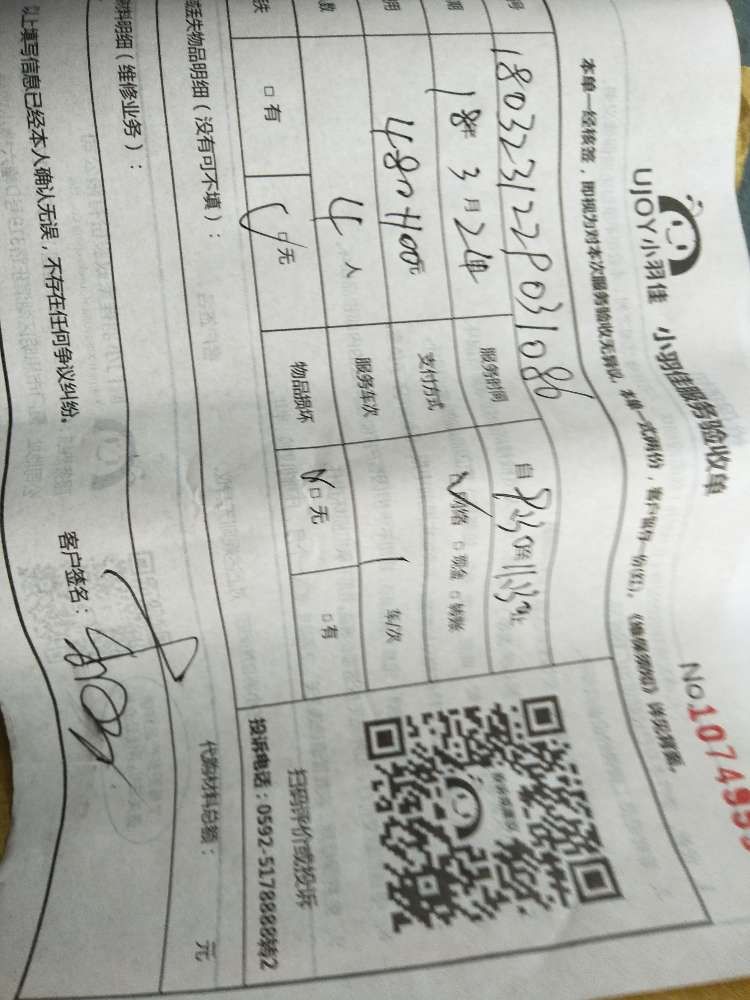 UJOY小羽佳 小羽佳服务验收单
No.107495
本单一经核签，即视为对本次服务验收无异议，本单一式两份，客户留存一份(红)。《维保须知》详见背面。
号 180323122P031086
期 18年 3月 24日 服务时间 自
用 480+400元 支付方式 网络 □现金 □转账
数 4人 服务车次 1 车/次
失 □有 □无 物品损坏 □无 □有
扫码评价或投诉
投诉电话：0592-5178888转2
丢失物品明细（没有可不填）：
料明细（维修业务）： 代购材料总额： 元
以上填写信息已经本人确认无误，不存在任何争议纠纷。 客户签名：